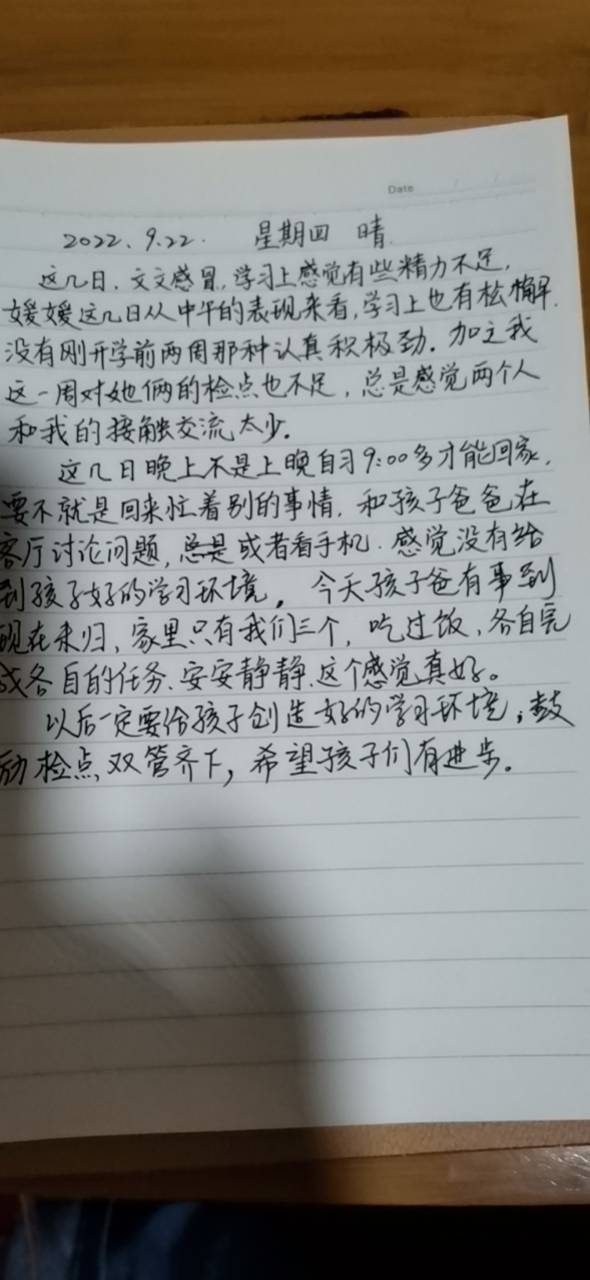 Date
2022.9.22. 星期四 晴.
这几日,文文感冒,学习上感觉有些精力不足,
媛媛这几日从中午的表现来看,学习上也有松懈,
没有刚开学前两周那种认真积极劲.加之我
这一周对她俩的检点也不足,总是感觉两个人
和我的接触交流太少.
这几日晚上不是上晚自习9:00多才能回家,
要不就是回来忙着别的事情,和孩子爸爸在
客厅讨论问题,总是或者看手机.感觉没有给
到孩子好的学习环境,今天孩子爸有事到
现在未归,家里只有我们三个,吃过饭,各自完
成各自的任务、安安静静、这个感觉真好。
以后一定要给孩子创造好的学习环境,鼓
励检点,双管齐下,希望孩子们有进步。